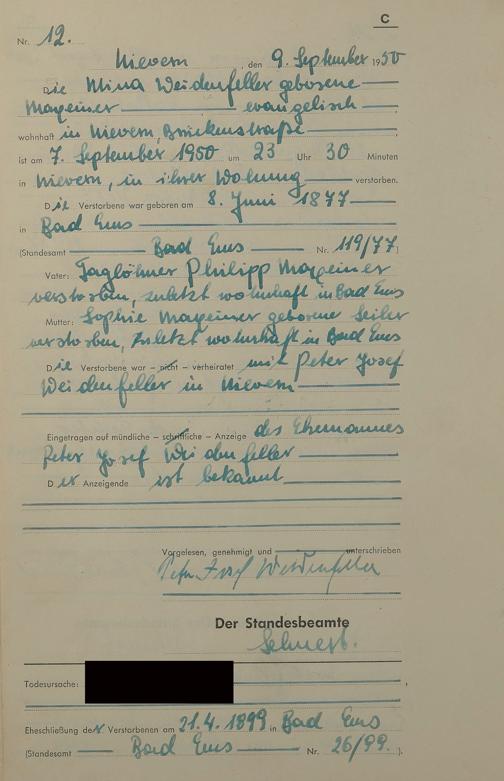 C
Nr. 12.
Nievern, den 9. September 1950
Die Mina Weidenfeller geborene
Mayeiner evangelisch
wohnhaft in Nievern, Brückenstraße
ist am 7. September 1950 um 23 Uhr 30 Minuten
in Nievern, in ihrer Wohnung verstorben.
Die Verstorbene war geboren am 8. Juni 1877
in Bad Ems
(Standesamt Bad Ems Nr. 119/77)
Vater: Taglöhner Philipp Mayeiner
verstorben, zuletzt wohnhaft in Bad Ems
Mutter: Sophie Mayeiner geborene Seiler
verstorben, zuletzt wohnhaft in Bad Ems
Die Verstorbene war – nicht – verheiratet mit Peter Josef
Weidenfeller in Nievern
Eingetragen auf mündliche – schriftliche – Anzeige des Ehemannes
Peter Josef Weidenfeller
Der Anzeigende ist bekannt
Vorgelesen, genehmigt und unterschrieben
Peter Josef Weidenfeller
Der Standesbeamte
Todesursache:
Eheschließung der Verstorbenen am 21.4.1899 in Bad Ems
(Standesamt Bad Ems Nr. 26/99.)